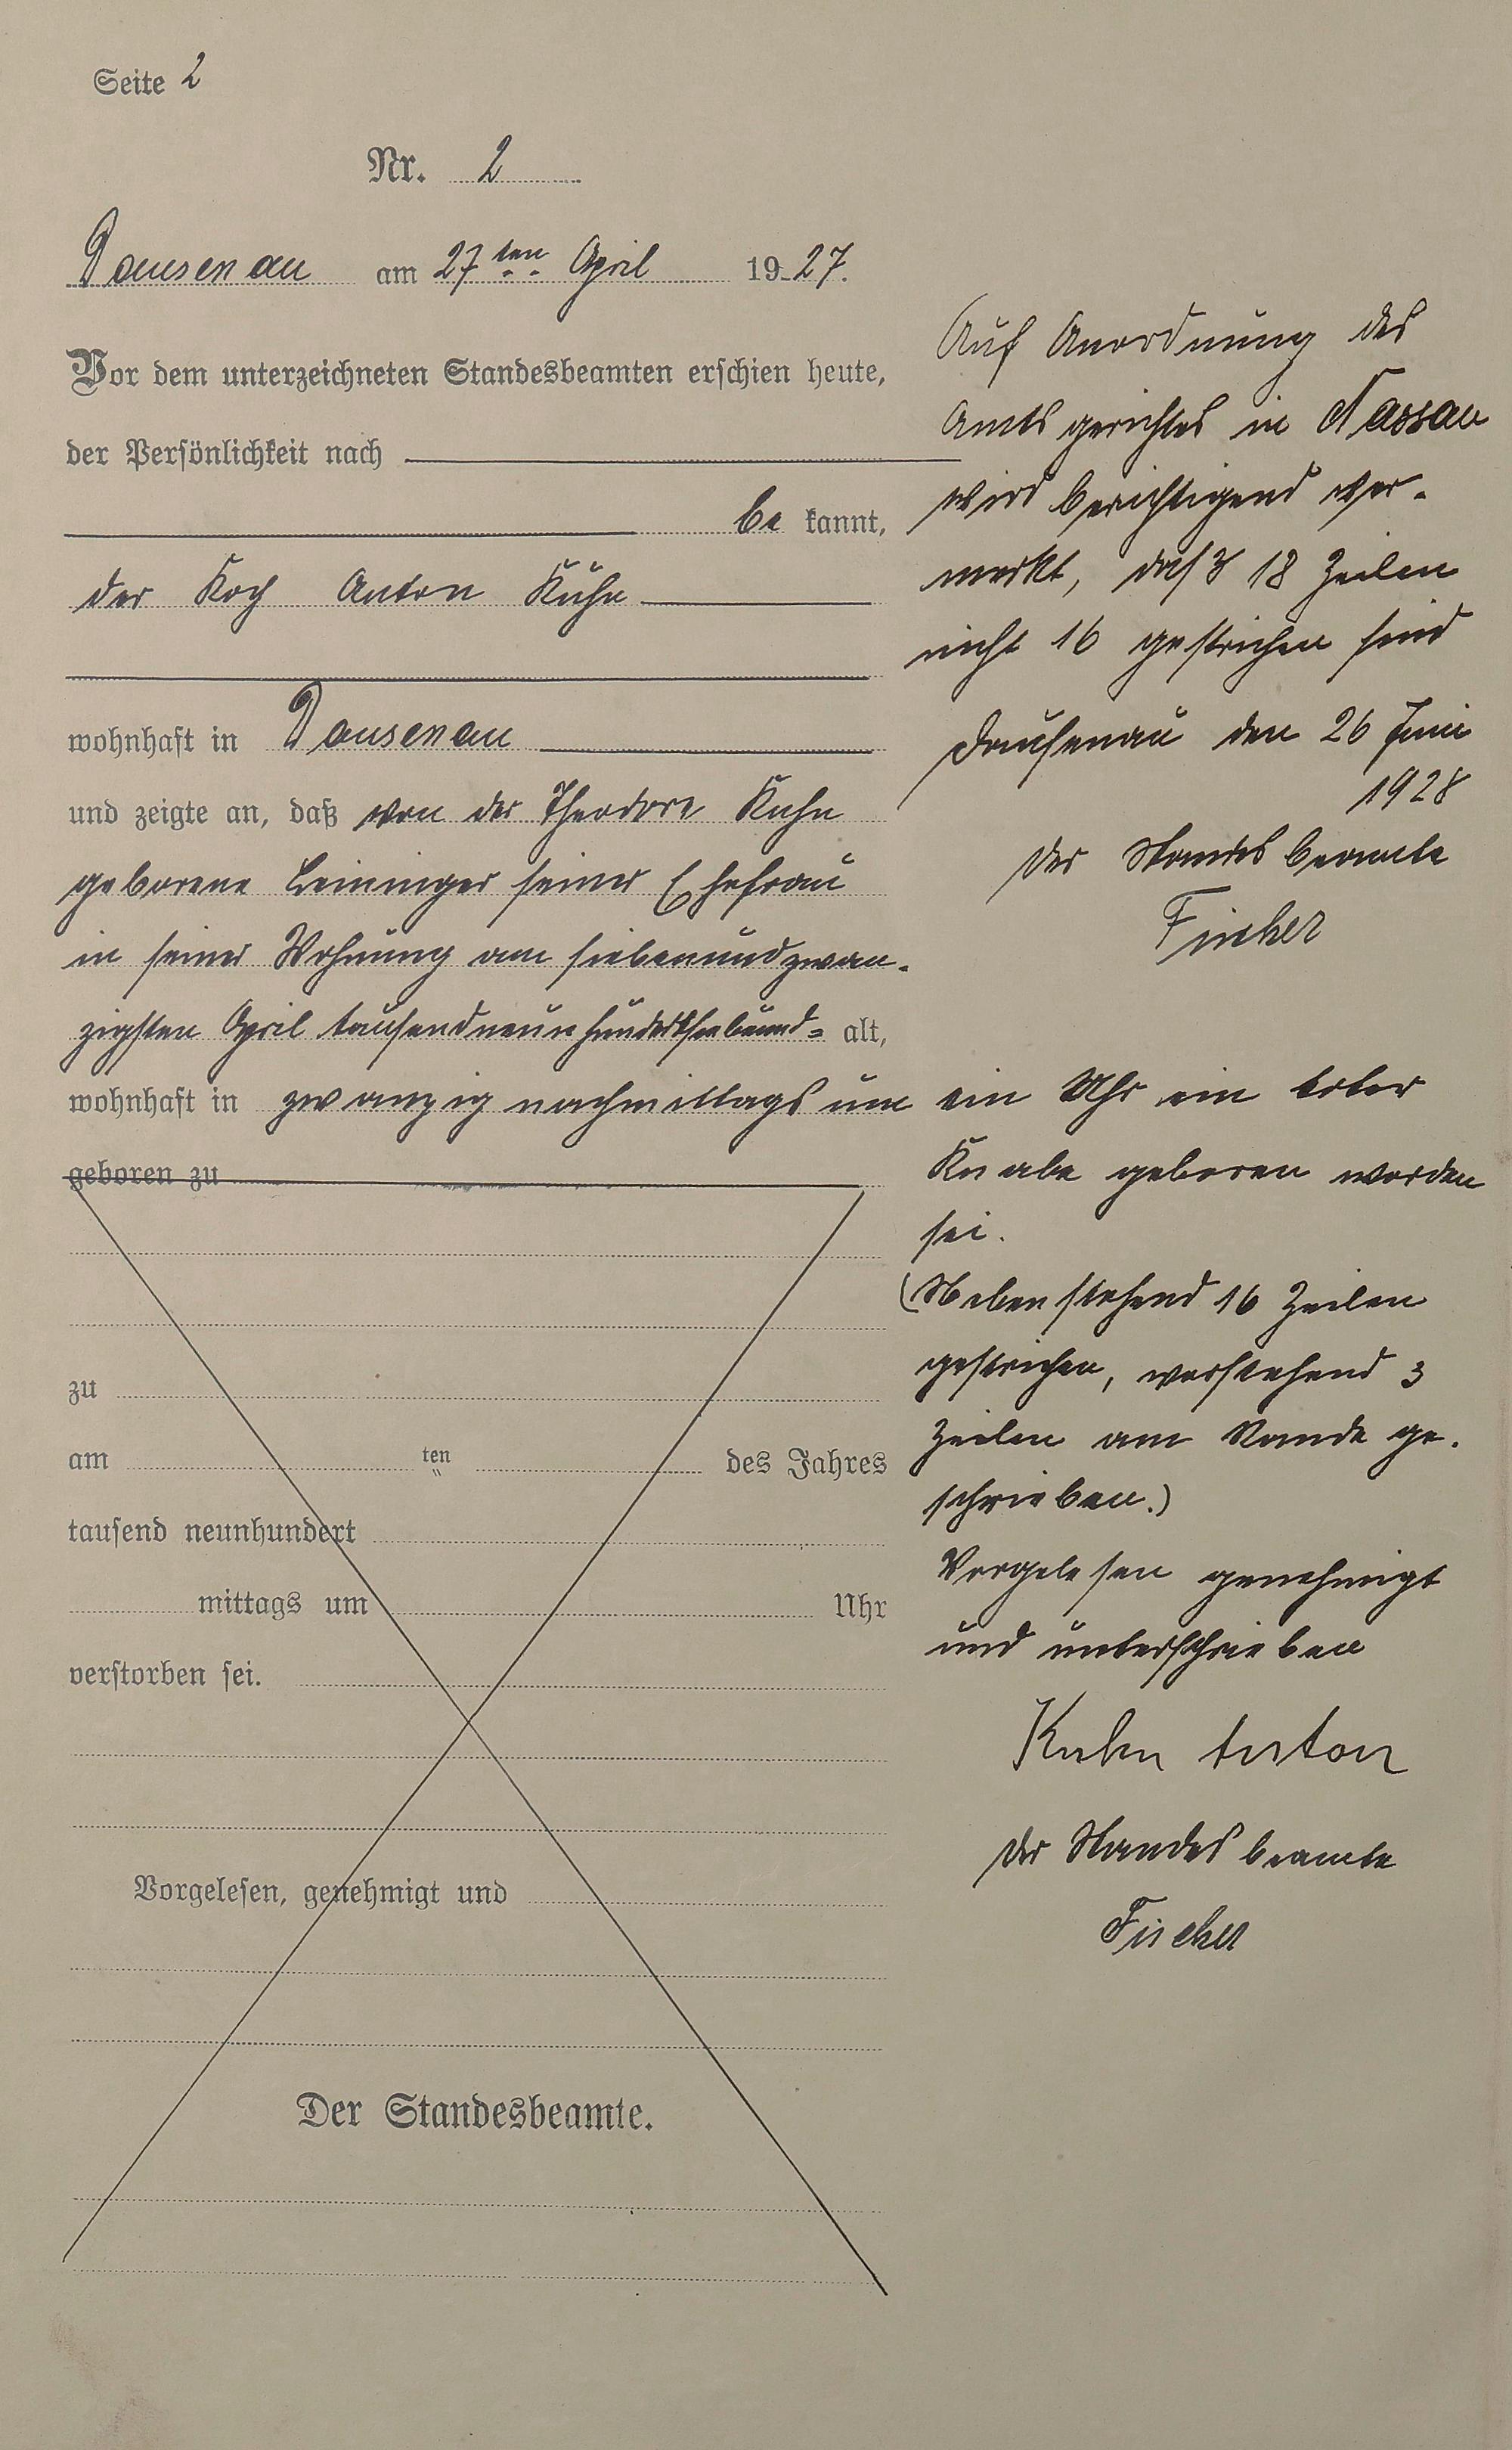 Seite 2
Nr. 2
Dausenau am 27ten April 1927.
Vor dem unterzeichneten Standesbeamten erschien heute,
der Persönlichkeit nach
be kannt,
der Koch Anton Kuhn
wohnhaft in Dausenau
und zeigte an, daß von der Theodore Kuhn
geborene Leininger seiner Ehefrau
in seiner Wohnung am siebenundzwan-
zigsten April tausendneunhundertsiebenund= alt,
wohnhaft in zwanzig nachmittags um ein Uhr ein toter
geboren zu
Knabe geboren worden
sei.
(Nebenstehend 16 Zeilen
gestrichen, vorstehend 3
Zeilen am Rande ge-
schrieben.)
Vorgelesen genehmigt
und unterschrieben
Kuhn Anton
Der Standesbeamte
Fischer
zu
am ten des Jahres
tausend neunhundert
mittags um Uhr
verstorben sei.
Vorgelesen, genehmigt und
Der Standesbeamte.
Auf Anordnung des
Amtsgerichtes in Nassau
wird berichtigend ver-
merkt, daß 18 Zeilen
nicht 16 gestrichen sind
Dausenau den 26 Juni
1928
Der Standesbeamte
Fischer